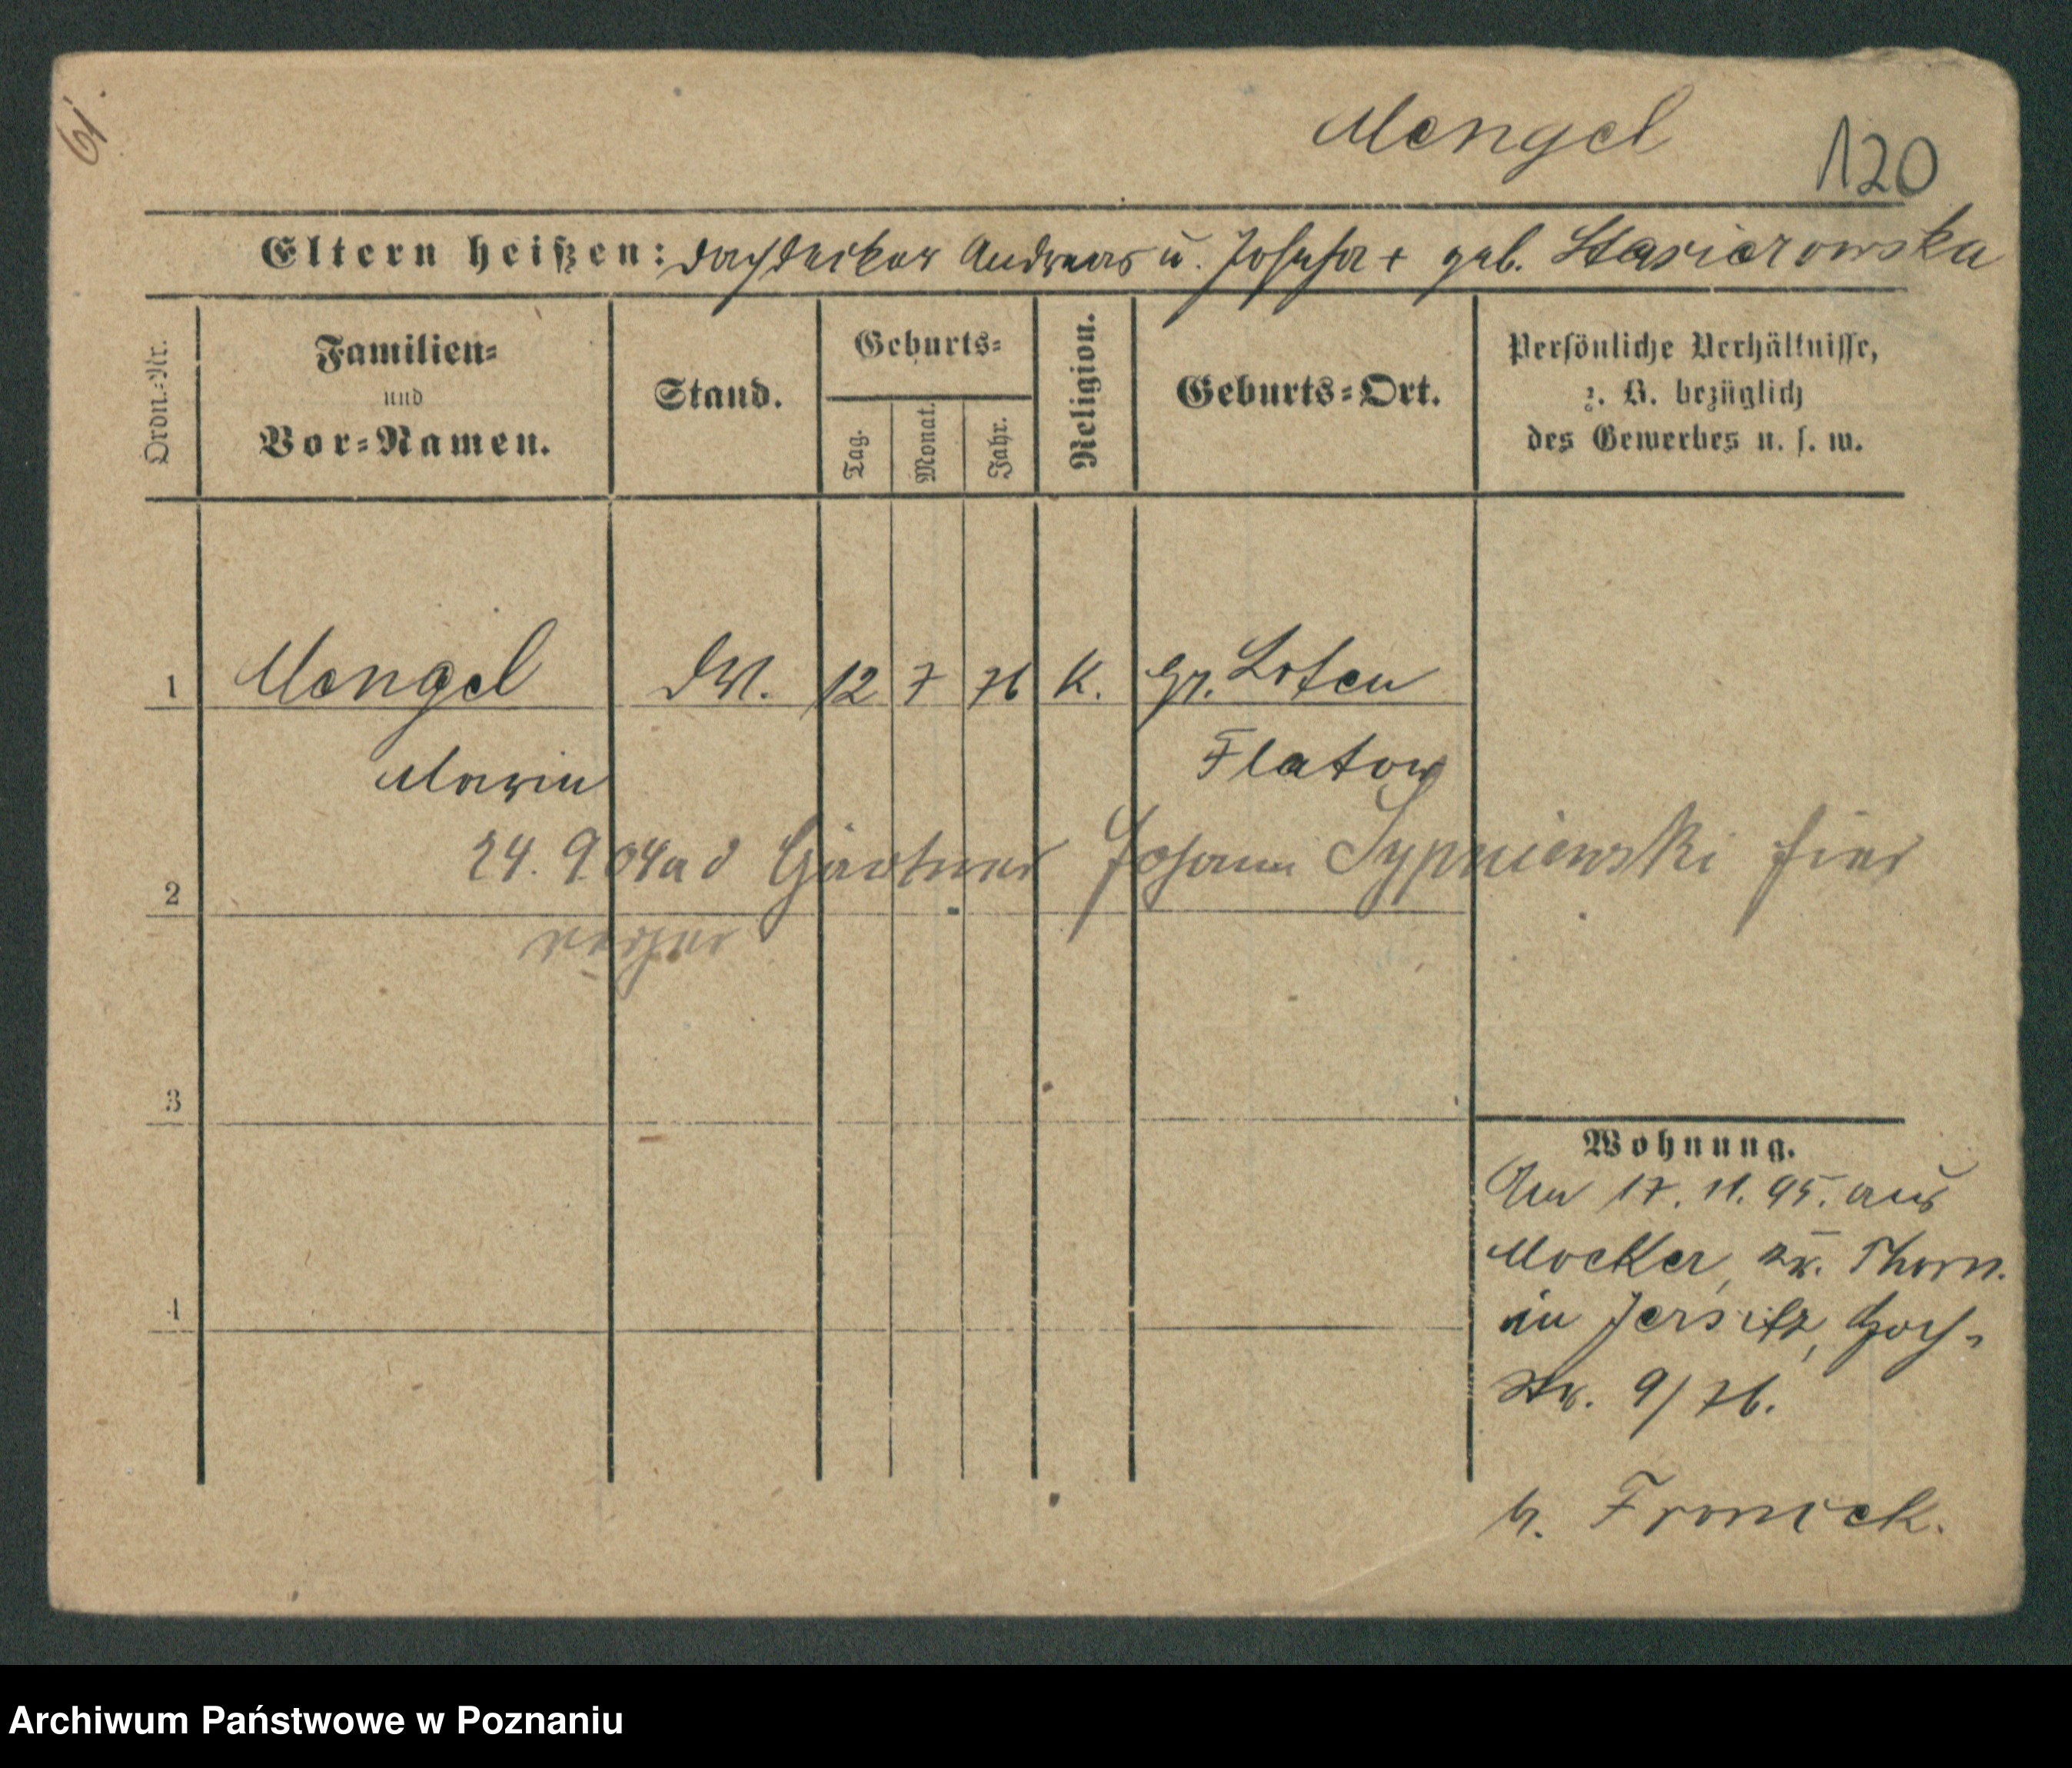 61.
Mengel
120
Eltern heißen: Dachdecker Andreas u. Josefa + geb. Stasierowska
Ordn.-Nr.
Familien-
und
Vor-Namen.
Stand.
Geburts-
Tag.
Monat.
Jahr.
Religion.
Geburts-Ort.
Persönliche Verhältnisse,
z. B. bezüglich
des Gewerbes u. s. w.
1 Mengel 12 7 76 K. Gr. Loßen
Maria Flatow
24.9.04 a d Gärtner Johann Sypniewski hier
2
verher
3
Wohnung.
Am 17. 11. 95. aus
Mocker, Kr. Thorn.
in Jersitz, Hoch-
str. 9/76.
4
b. Fronick.
Archiwum Państwowe w Poznaniu